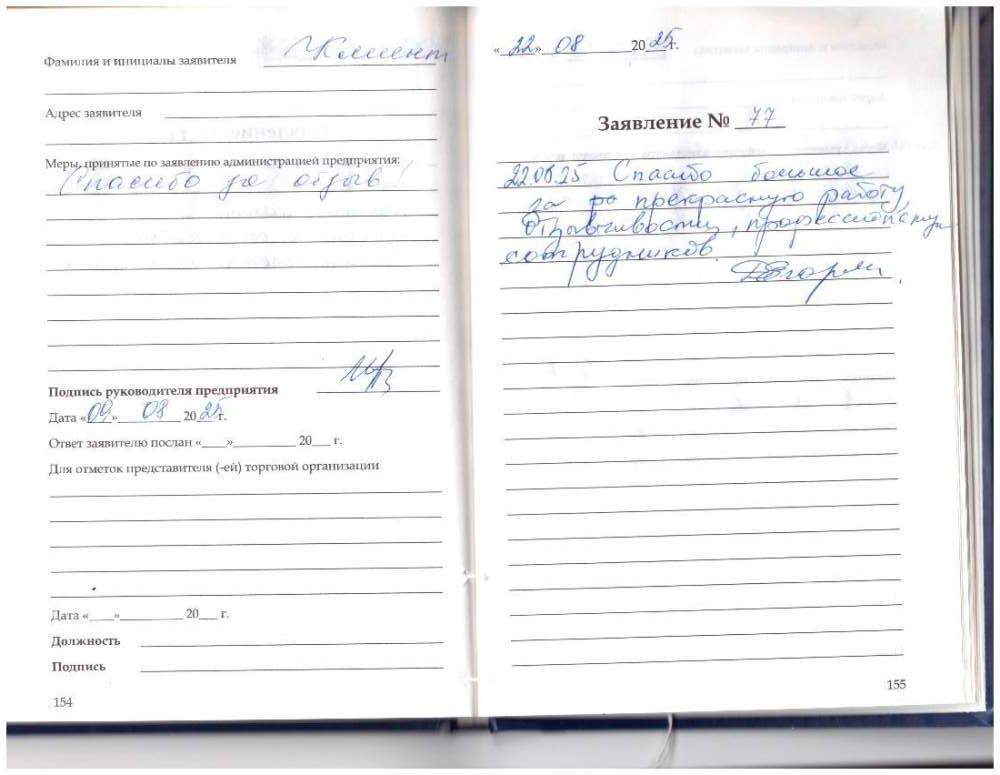 Фамилия и инициалы заявителя Клиент
Адрес заявителя
Меры, принятые по заявлению администрацией предприятия:
Спасибо за отзыв!
Подпись руководителя предприятия
Дата «09» 08 2025 г.
Ответ заявителю послан «____»__________ 20___ г.
Для отметок представителя (-ей) торговой организации
Дата «____»__________ 20___ г.
Должность
Подпись
154
«22» 08 2025г.
Заявление № 77
22.08.25 Спасибо большое
за прекрасную работу,
отзывчивость,
сотрудников.
155